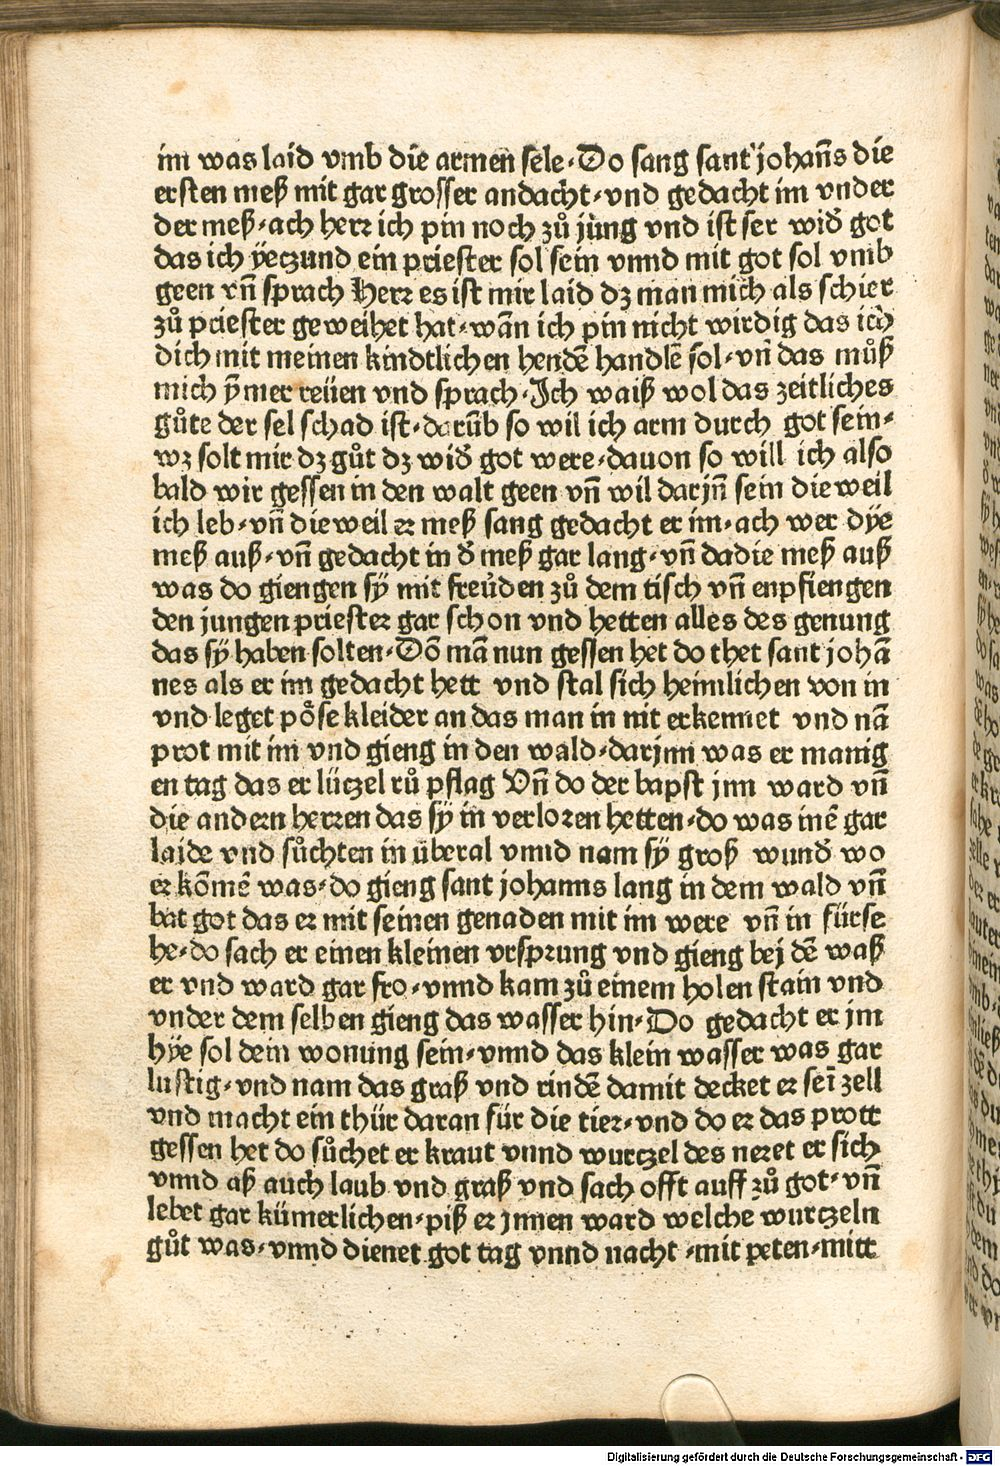 im was laid vmb die armen sele·Do sang sant johañs die
ersten meß mit gar grosser andacht·vnd gedacht im vnder
der meß·ach herr ich pin noch zů jüng vnd ist ser wid̄ got
das ich ÿeczund ein priester sol sein vnnd mit got sol vmb
geen vn̄ sprach Herr es ist mir laid dz man mich als schier
zů priester geweihet hat·wān ich pin nicht wirdig das ich
dich mit meinen kindtlichen hendē handlē sol·vn̄ das můß
mich ȳmer reüen vnd sprach·Ich waiß wol das zeitliches
gůte der sel schad ist·darūb so wil ich arm durch got sein·
wz solt mir dz gůt dz wid̄ got were·dauon so will ich also
bald wir gessen in den walt geen vn̄ wil darjn̄ sein die weil
ich leb·vn̄ die weil er meß sang gedacht er im·ach wer dÿe
meß auß·vn̄ gedacht in d̄ meß gar lang·vn̄ da die meß auß
was do giengen sÿ mit freůden zů dem tisch vn̄ enpfiengen
den jungen priester gar schon vnd hetten alles des genung
das sÿ haben solten·Dō mā nun gessen het do thet sant johā
nes als er im gedacht hett vnd stal sich heimlichen von in
vnd leget pöse kleider an das man in nit erkennet vnd nā
prot mit im vnd gieng in den wald·darjnn was er manig
en tag das er lüczel rů pflag Vn̄ do der bapst jnn ward vn̄
die andern herren das sÿ in verloren hetten·do was inē gar
laide vnd sůchten in überal vnnd nam sÿ groß wund̄ wo
er kōmē was·do gieng sant johanns lang in dem wald vn̄
bat got das er mit seinen genaden mit im were vn̄ in fürse
he·do sach er einen kleinen vrsprung vnd gieng bej dē waß
er vnd ward gar fro·vnnd kam zů einem holen stain vnd
vnder dem selben gieng das wasser hin·Do gedacht er jm
hÿe sol dein wonung sein·vnnd das klein wasser was gar
lustig·vnd nam das graß vnd rindē damit decket er seī zell
vnd macht ein thür daran für die tier·vnd do er das prott
gessen het do sůchet er kraut vnnd wurczel des neret er sich
vnnd aß auch laub vnd graß vnd sach offt auff zů got·vn̄
lebet gar kümerlichen·piß er jnnen ward welche wurczeln
gůt was·vnnd dienet got tag vnnd nacht·mit peten·mitt
Digitalisierung gefördert durch die Deutsche Forschungsgemeinschaft - DFG